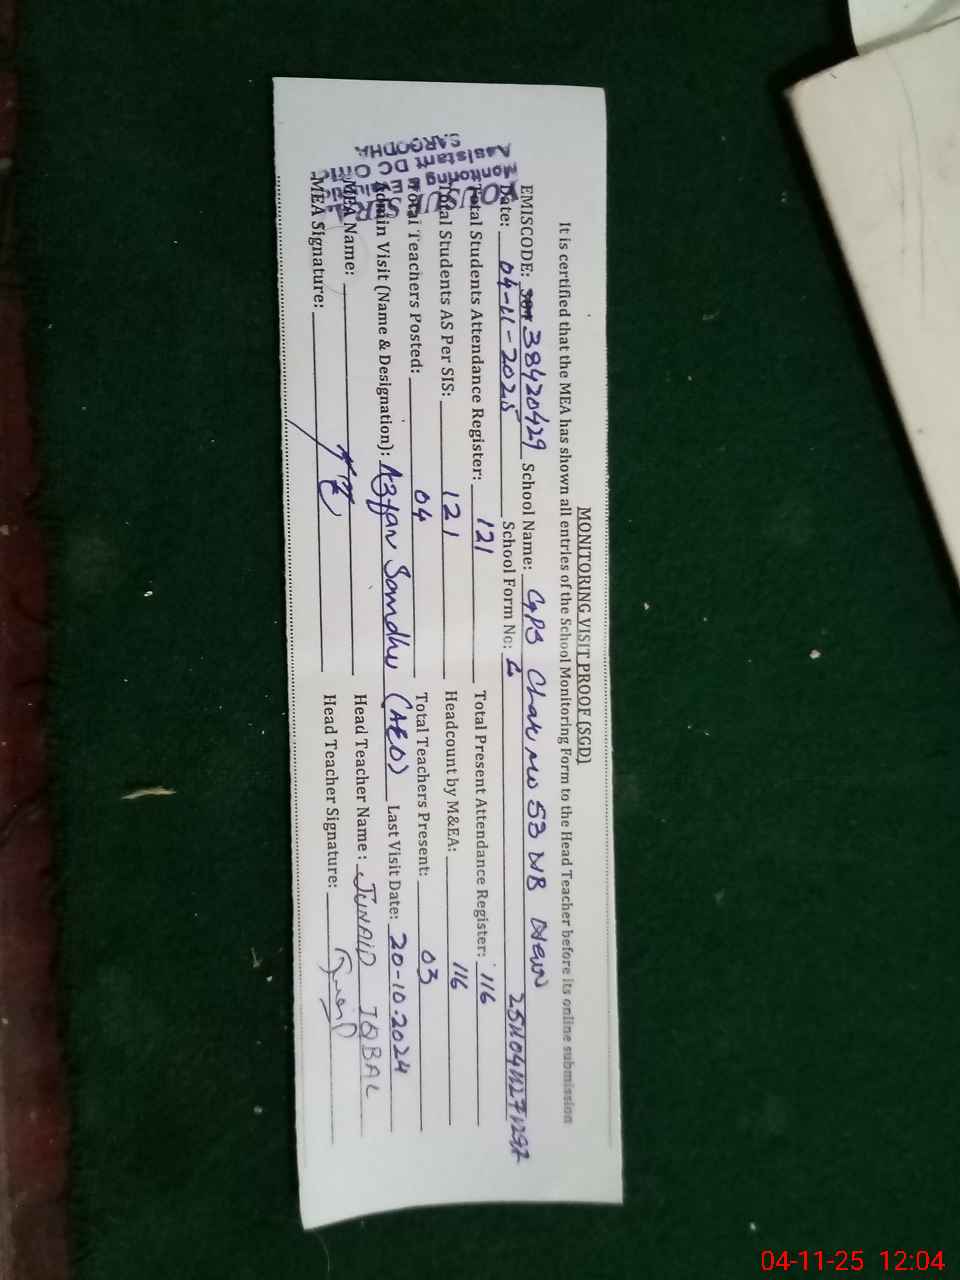 MONITORING VISIT PROOF (SGD)
It is certified that the MEA has shown all entries of the School Monitoring Form to the Head Teacher before its online submission
EMISCODE: 38420429 School Name: GPS Chak No 53 NB New
Date: 04-11-2025 School Form No:
Total Students Attendance Register: 121 Total Present Attendance Register: 116
Total Students AS Per SIS: 121 Headcount by M&EA: 116
Total Teachers Posted: 04 Total Teachers Present: 03
Admin Visit (Name & Designation): (AEO) Last Visit Date: 20-10-2024
MEA Name: Head Teacher Name: JUNAID IQBAL
MEA Signature: Head Teacher Signature:
Monitoring
Assistant DC Office
SARGODHA
04-11-25 12:04